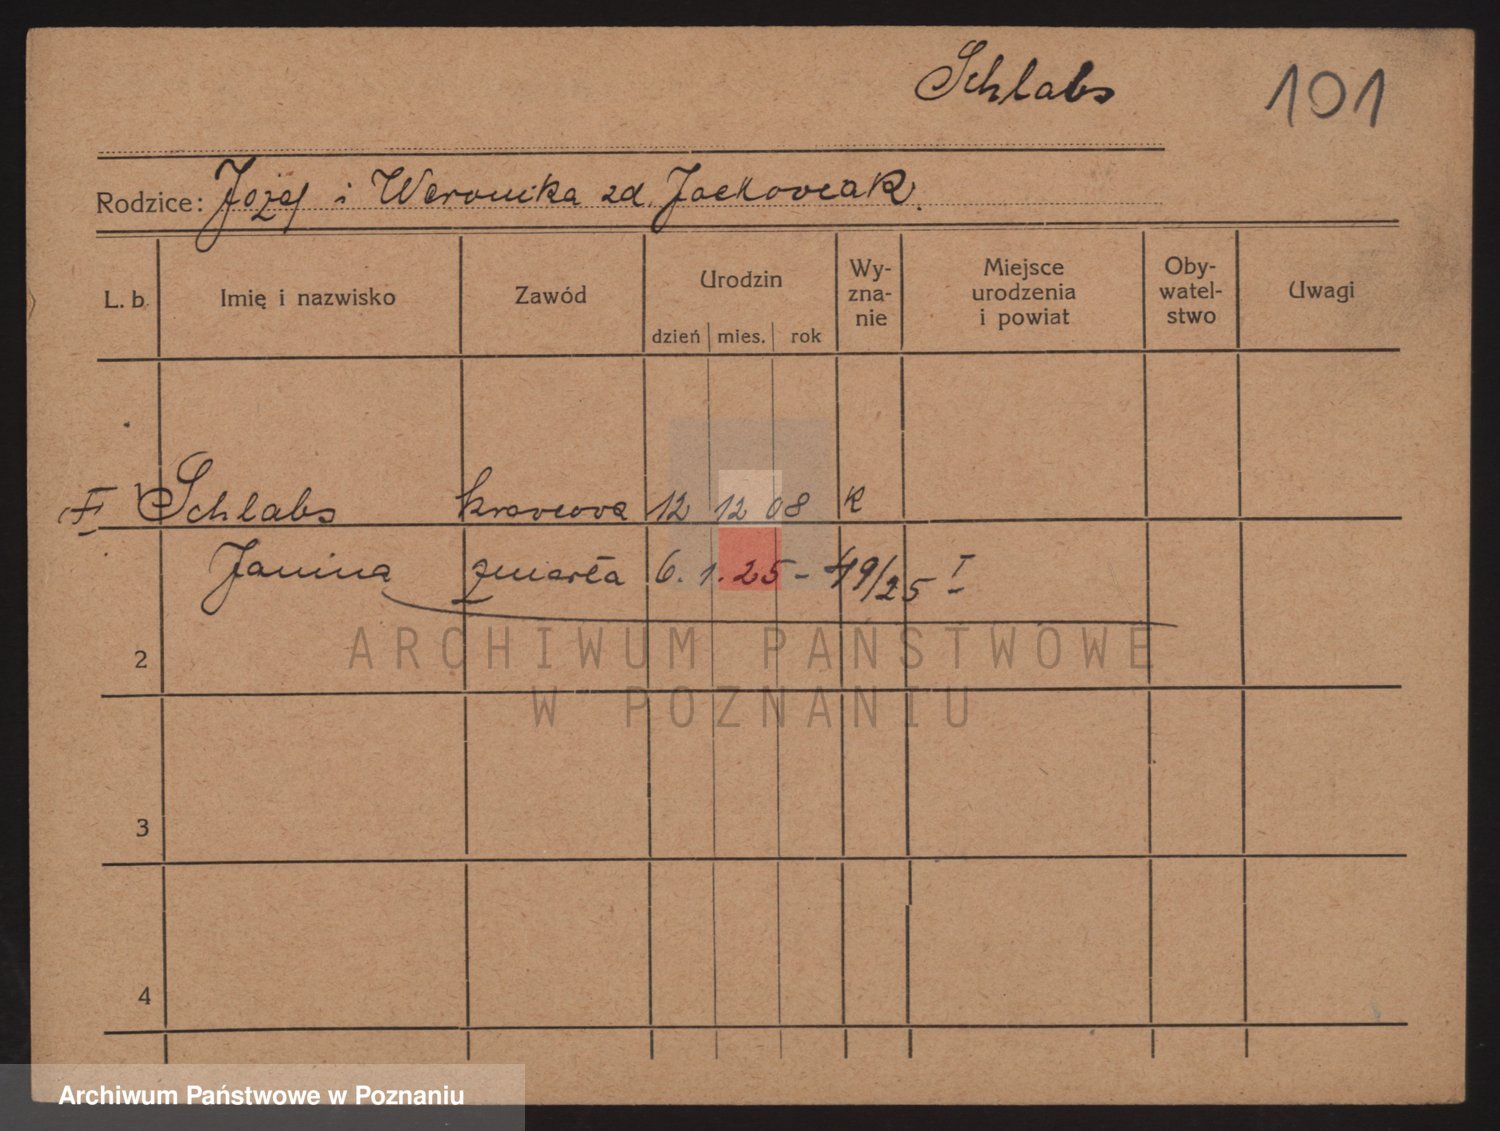 Schlabs
101
Rodzice: Józef i Weronika zd. Jackowiak.
L. b.
Imię i nazwisko
Zawód
Urodzin
dzień mies. rok
Wy-
zna-
nie
Miejsce
urodzenia
i powiat
Oby-
watel-
stwo
Uwagi
1 Schlabs krawcowa 12 12 08 K
Janina zmarła 6. 1. 25 - 49/25 I
2
3
4
ARCHIWUM PAŃSTWOWE
W POZNANIU
Archiwum Państwowe w Poznaniu